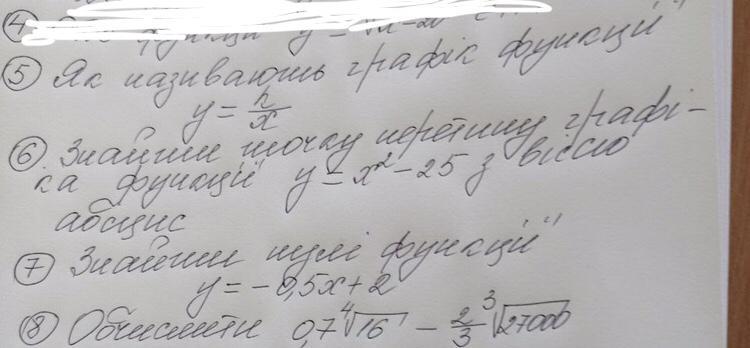 ④ функції y = √x-20
⑤ Як називають графік функції"
y = k/x
⑥ Знайти точку перетину графі-
ка функції y = x² - 25 з віссю
абсцис
⑦ Знайти нулі функції"
y = -0,5x + 2
⑧ Обчислити 0,7 ∜16 - 2/3 ∛27000